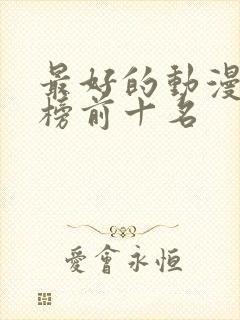 最好的動漫
榜前十名
愛會永恒